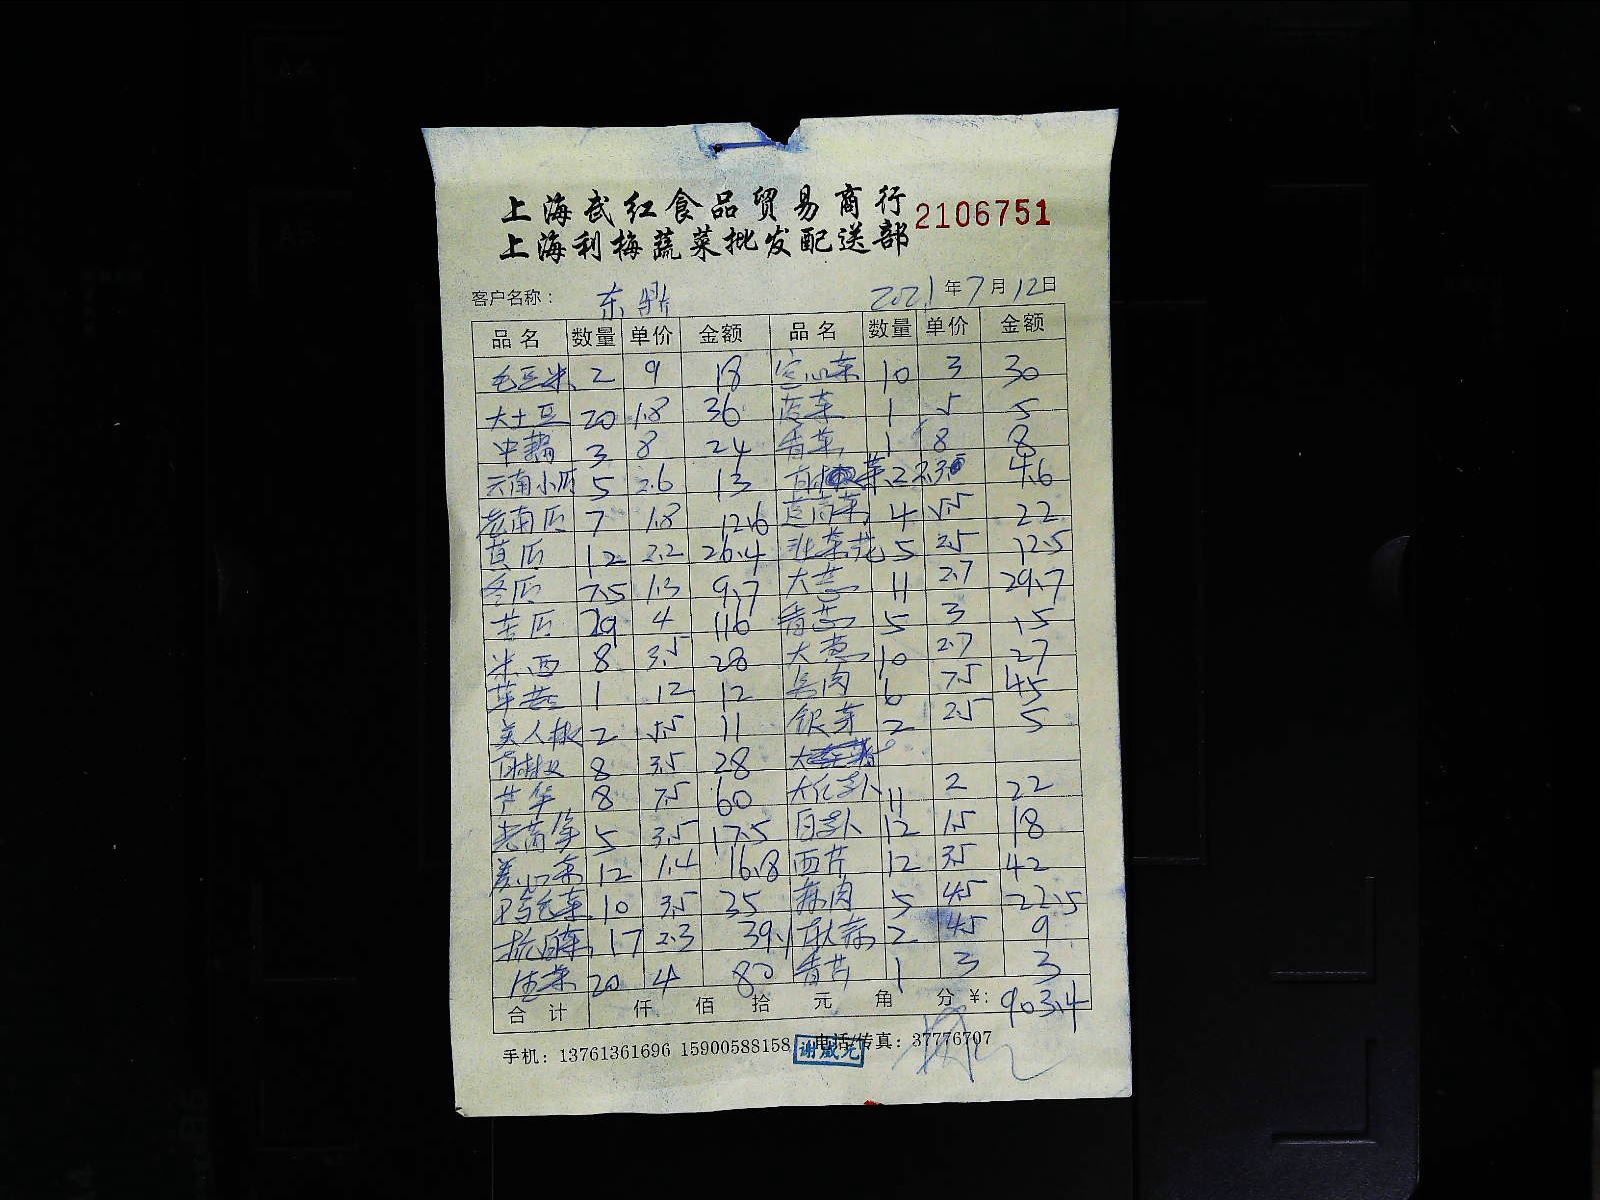 上海武红食品贸易商行
2106751
上海利梅蔬菜批发配送部
客户名称： 东鼎 2021年7月12日
品名 数量 单价 金额 品名 数量 单价 金额
毛豆米 2 9 18 空心菜 10 3 30
大土豆 20 1.8 36 1 5 5
中藕 3 8 24 香菜 1 8 8
云南小瓜 5 2.6 13 菜 2 2.3 4.6
老南瓜 7 1.8 12.6 4 5.5 22
黄瓜 12 2.2 26.4 花 5 2.5 12.5
冬瓜 7.5 1.3 9.7 大葱 11 2.7 29.7
苦瓜 29 4 116 香葱 5 3 15
米西 8 3.5 28 大葱 10 2.7 27
草 1 12 12 肉 6 7.5 45
美人椒 2 5.5 11 银芽 2 2.5 5
8 3.5 28
芦笋 8 7.5 60 大红萝卜 11 2 22
光莴笋 5 3.5 17.5 白萝卜 12 1.5 18
卷心菜 12 1.4 16.8 西芹 12 3.5 42
鸡毛菜 10 3.5 35 蒜肉 5 4.5 22.5
杭白菜 17 2.3 39.1 2 4.5 9
生菜 20 4 80 香芹 1 3 3
合计 仟 佰 拾 元 角 分 ¥: 903.4
手机：13761361696 15900588158 电话/传真：37776707